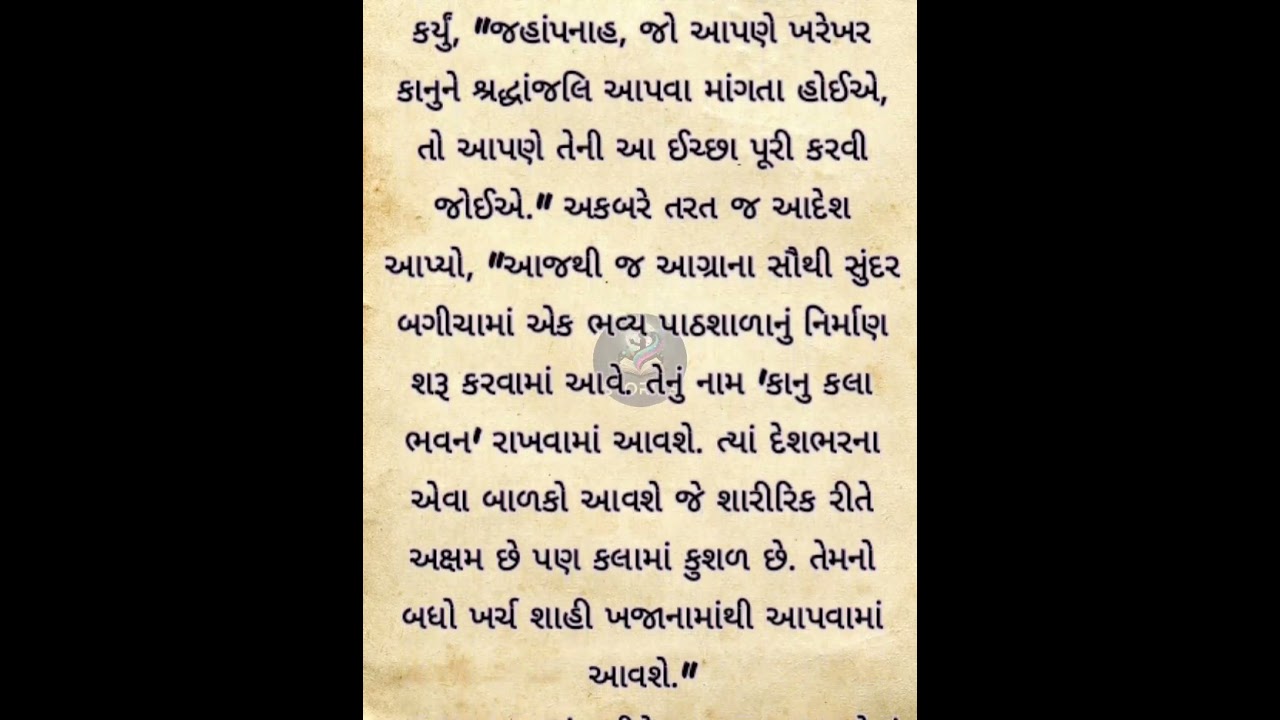 કર્યું, "જહાંપનાહ, જો આપણે ખરેખર
કાનુને શ્રદ્ધાંજલિ આપવા માંગતા હોઈએ,
તો આપણે તેની આ ઈચ્છા પૂરી કરવી
જોઈએ." અકબરે તરત જ આદેશ
આપ્યો, "આજથી જ આગ્રાના સૌથી સુંદર
બગીચામાં એક ભવ્ય પાઠશાળાનું નિર્માણ
શરૂ કરવામાં આવે. તેનું નામ 'કાનુ કલા
ભવન' રાખવામાં આવશે. ત્યાં દેશભરના
એવા બાળકો આવશે જે શારીરિક રીતે
અક્ષમ છે પણ કલામાં કુશળ છે. તેમનો
બધો ખર્ચ શાહી ખજાનામાંથી આપવામાં
આવશે."